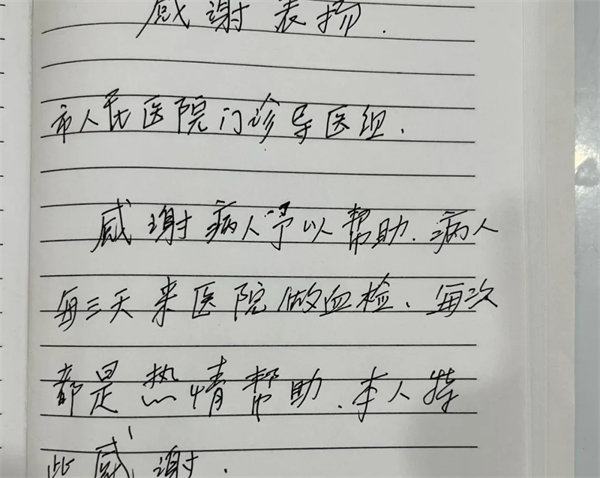 感谢表扬.
市人民医院门诊导医组.
感谢病人予以帮助.病人
每三天来医院做血检、每次
都是热情帮助.本人特
此感谢.